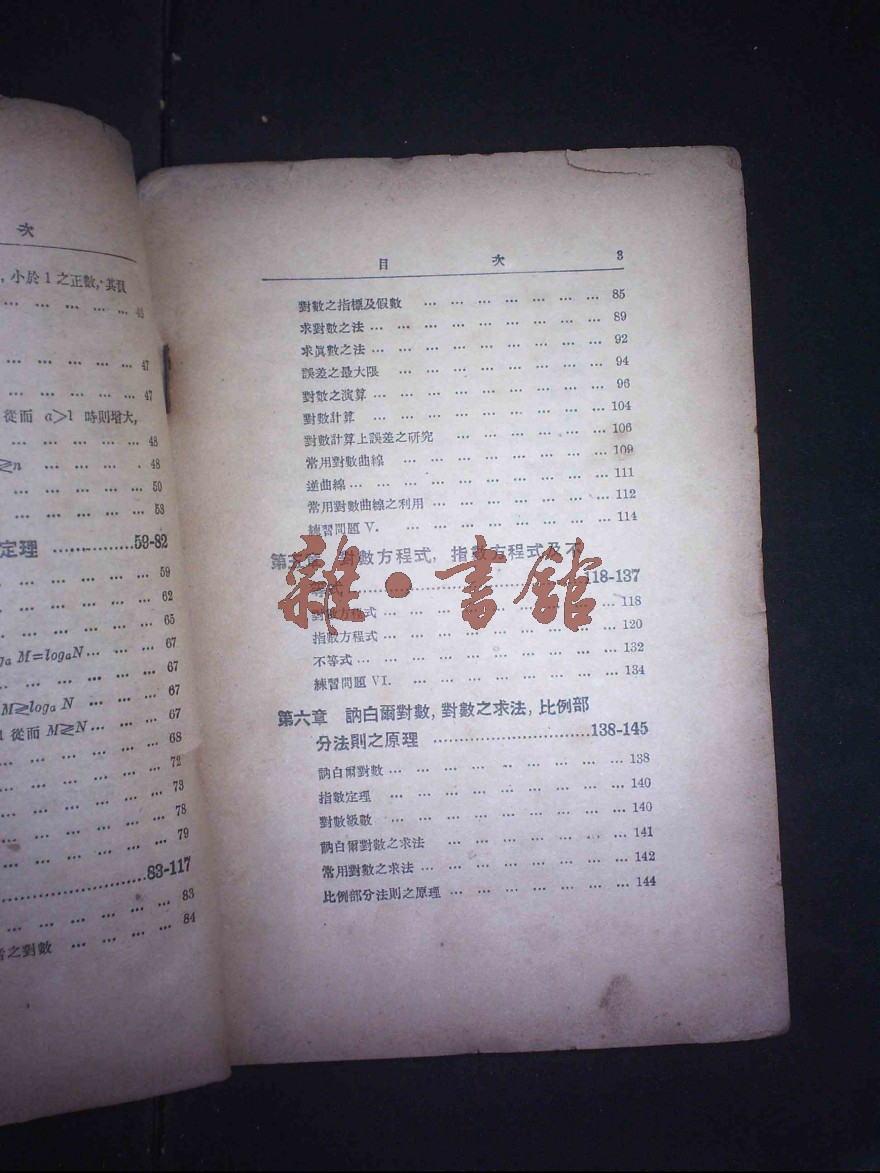 次
小於 1 之正數, 其
… … … … 46
… … … … … 47
… … … … … 47
從而 a>1 時則增大,
… … … … … 48
≷n … … … . 48
… … … … … 50
… … … … … 53
定理 ……………59-82
… … … … … 59
… … … … … 62
… … … … … 65
M=logₐN… … … 67
… … … … … 67
M≷logₐ N … … … 67
從而 M≷N… … … 67
… … … … … 68
… … … … … 72
… … … … … 73
… … … … … 78
… … … … … 79
……………………83-117
… … … … … 83
之對數 … … … … 84
目 次 3
對數之指標及假數 … … … … … … … 85
求對數之法 … … … … … … … … … 89
求眞數之法 … … … … … … … … … 92
誤差之最大限 … … … … … … … … 94
對數之演算 … … … … … … … … … 96
對數計算 … … … … … … … … … 104
對數計算上誤差之研究 … … … … … … 106
常用對數曲線 … … … … … … … … 109
逆曲線 … … … … … … … … … … 111
常用對數曲線之利用 … … … … … … … 112
練習問題 V. … … … … … … … … 114
第五章 對數方程式, 指數方程式及不
等式 ……………………………118-137
對數方程式 … … … … … … … … 118
指數方程式 … … … … … … … … 120
不等式 … … … … … … … … … 132
練習問題 VI. … … … … … … … … 134
第六章 訥白爾對數, 對數之求法, 比例部
分法則之原理 ……………………138-145
訥白爾對數 … … … … … … … … 138
指數定理 … … … … … … … … 140
對數級數 … … … … … … … … 140
訥白爾對數之求法 … … … … … … 141
常用對數之求法 … … … … … … … 142
比例部分法則之原理 … … … … … … 144
雜·書館